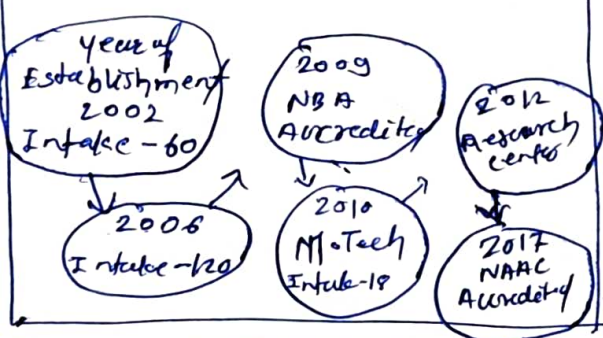 Year of
Establishment
2002
Intake - 60
2006
Intake - 120
2009
NBA
Accredited
2010
M.Tech
Intake - 18
2012
Research
center
2017
NAAC
Accredited